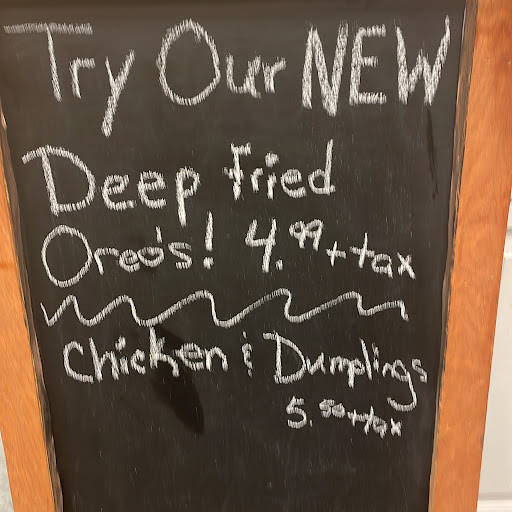 Try Our NEW
Deep Fried
Oreo's! 4.99 + tax
Chicken & Dumplings
5.50 + tax